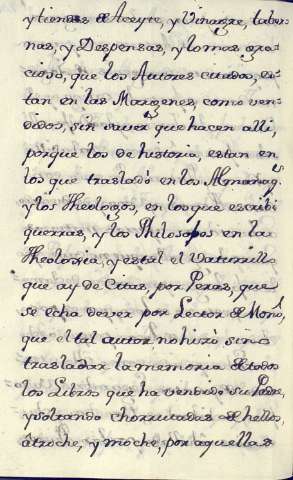 y tiendas de Aceyte, y Vinagre, taber-
nas, y Despensas, y lo mas gra-
cioso, que los Autores citados, es-
tan en las Margenes, como ven-
didos, sin saver que hacen alli,
porque los de historia, estan en
los que traslado en los Almanaqs
y los Theologos, en los que escribi
guerras, y los Philosophos en la
Theologia, y es tal el Vaturrillo
que ay de Citas, por Peras, que
se echa de ver por Lector de Monl,
que el tal autor no hizo sino
trasladar la memoria de todos
los Libros que ha vendido su Padre,
y soltando chorretadas de hellos,
â troche, y moche, por aquellas